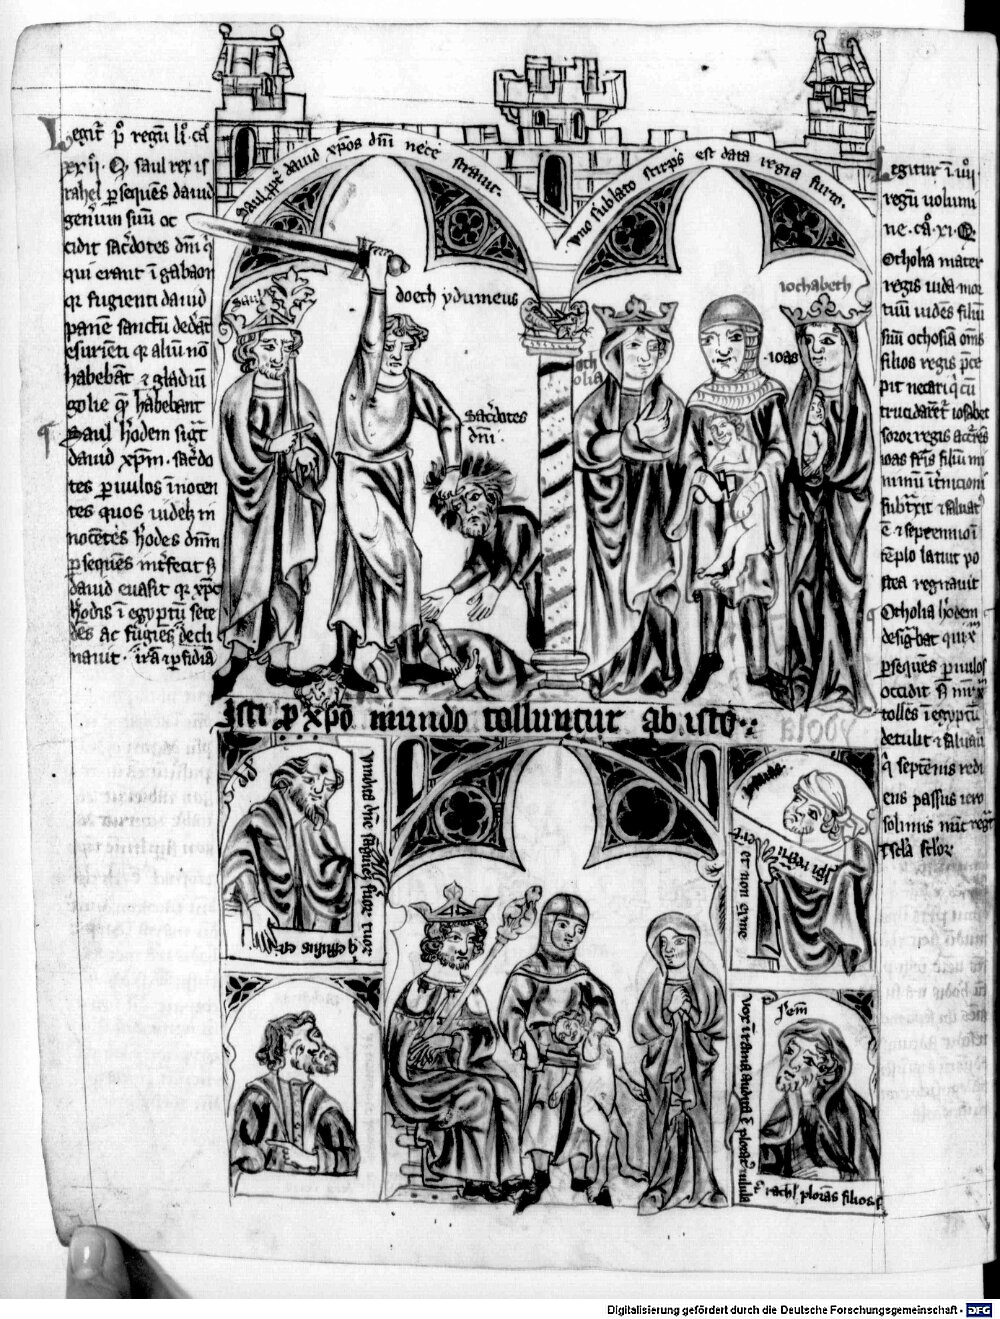 Legit' p° regū li° ca°
xxii° Q saul rex is
rahel p̄seqūes dauid
gen'um suū oc
cidit sac'dotes dn̄i q'
qui erant ī gabaon
qr fugienti dauid
panē sanctū dedāt
esuriēti qr aliū nō
habebāt ⁊ gladiū
golie q̄ habebant
Saul h'odem sig't
dauid xp̄m . sac'do
tes p̄uulos īnocen
tes quos uidelz in
nocētēs h'odes dn̄m
p̄seqūēs int'fecit s̄
dauid euasit qr xp̄c
h'odis ī egyptū sete
dēs ac fugiēs decli
nauit . irā ⁊ p̄fidiā
Saul pp̄t' dauid xp̄os dn̄i nece strauit .
Vno sublato stirpis est data regia furto .
saul
doech ydumeus
sac'dotes
dn̄i .
och
olia
ioas
iochabeth
Legitur ī iiii°
regū uolumi
ne . ca° . xi . Q
Otholia mater
regis iuda mor
tuū uidēs filiū
suū ochosiā om̄s
filios regis p̄ce
pit necari q̄ cū
trucidarēt' iosabet
soror regis accipiēs
ioas fr̄is filiū mi
nimū
subt'xit ⁊ saluat'
ē ⁊ septennio ī
tēplo latuit po
stea regnauit
Otholia h'odem
desig'bat qui xp̄m
p̄sequēs p̄uulos
occidit s̄
tollēs ī egyptū
detulit ⁊ saluauit
q' septēnis redi
ens passus iero
solimis nūc regt'
ī sc'la sc'lor
Isti p xp̄o mundo tolluntur ab isto
dd
Vindica dn̄e sāguinē scōr tuor
q effusus est
et non ex me
ipi regn
Jerem̄
Vox ī rama audita ē ploratus ulula
rachl' plorās filios s
Digitalisierung gefördert durch die Deutsche Forschungsgemeinschaft - DFG